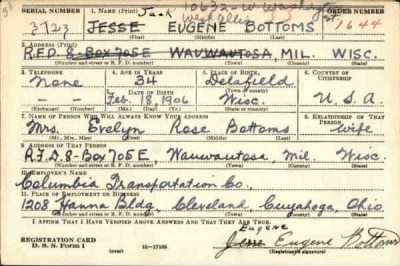 SERIAL NUMBER 1. NAME (Print) Jack 10632-W Washington St
West Allis
3723 JESSE EUGENE BOTTOMS 1644
(First) (Middle) (Last)
2. ADDRESS (Print)
R.F.D. 8-Box 705E WAUWAUTOSA, MIL. WISC.
(Number and street or R. F. D. number) (Town) (County) (State)
3. TELEPHONE 4. AGE IN YEARS 5. PLACE OF BIRTH 6. COUNTRY OF CITIZENSHIP
None 34 Delafield
DATE OF BIRTH (Town or county)
Feb. 18, 1906 Wisc. U.S.A.
(Exchange) (Number) (Mo.) (Day) (Yr.) (State or country)
7. NAME OF PERSON WHO WILL ALWAYS KNOW YOUR ADDRESS 8. RELATIONSHIP OF THAT PERSON
Mrs. Evelyn Rose Bottoms wife
(Mr., Mrs., Miss) (First) (Middle) (Last)
9. ADDRESS OF THAT PERSON
R.F.D. 8-Box 705E, Wauwautosa, Mil. Wisc.
(Number and street or R. F. D. number) (Town) (County) (State)
10. EMPLOYER'S NAME
Columbia Transportation Co.,
11. PLACE OF EMPLOYMENT OR BUSINESS
1208 Hanna Bldg, Cleveland Cuyahoga, Ohio
(Number and street or R. F. D. number) (Town) (County) (State)
I AFFIRM THAT I HAVE VERIFIED ABOVE ANSWERS AND THAT THEY ARE TRUE.
Eugene
REGISTRATION CARD Jesse Eugene Bottoms
D. S. S. Form 1 (over) 16-17105